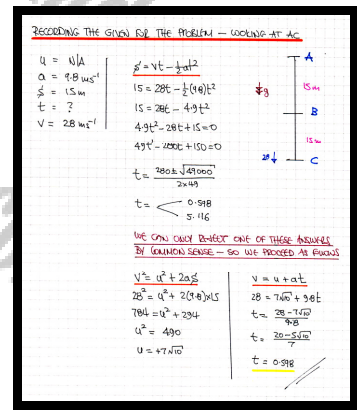 RECORDING THE GIVEN FOR THE PROBLEM – LOOKING AT AC
u = N/A
a = 9.8 ms⁻²
s = 15m
t = ?
v = 28 ms⁻¹
s = vt - ½at²
15 = 28t - ½(9.8)t²
15 = 28t - 4.9t²
4.9t² - 28t + 15 = 0
49t² - 280t + 150 = 0
t = 280 ± √49000 / 2×49
t = 0.598
5.116
A
15m
g
B
15m
28
C
WE CAN ONLY REJECT ONE OF THESE ANSWERS
BY COMMON SENSE – SO WE PROCEED AS FOLLOWS
v² = u² + 2as
28² = u² + 2(9.8)×15
784 = u² + 294
u² = 490
u = +7√10
v = u + at
28 = 7√10 + 9.8t
t = 28 - 7√10 / 9.8
t = 20 - 5√10 / 7
t = 0.598